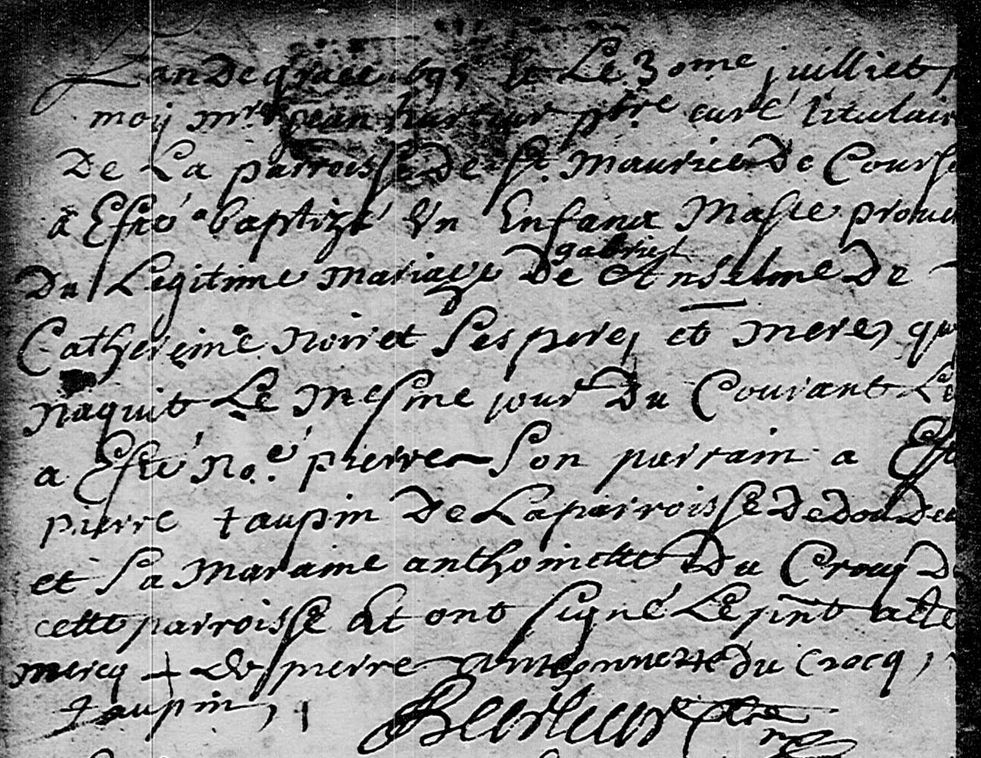 L'an de grace 1695 et Le 30me juilliet
moÿ mre jean hurteur ptre curé titulair
De La parroisse de st. maurice De Course
a Esté baptizé Vn Enfant Masle
Du Legitime mariage De gabriel Anselme De
Catherinne noiret Ses pere et mere qu
naquit Le mesme jour Du Courant Le
a Esté No.é pierre Son parrain a Esté
pierre taupin De La parroisse De doudeau
et Sa Maraine anthoinette Du Crocq De
cette parroisse et ont signé Le pnt acte
mercq + De pierre anthonnette du Crocq,
taupin,
ptre